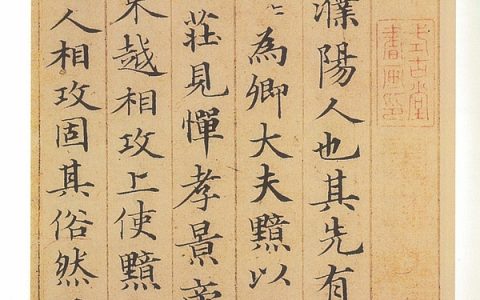 式古堂
書畫印
濮陽人也其先有
〻為卿大夫黯以
莊見憚孝景帝
東越相攻上使黯
人相攻固其俗然